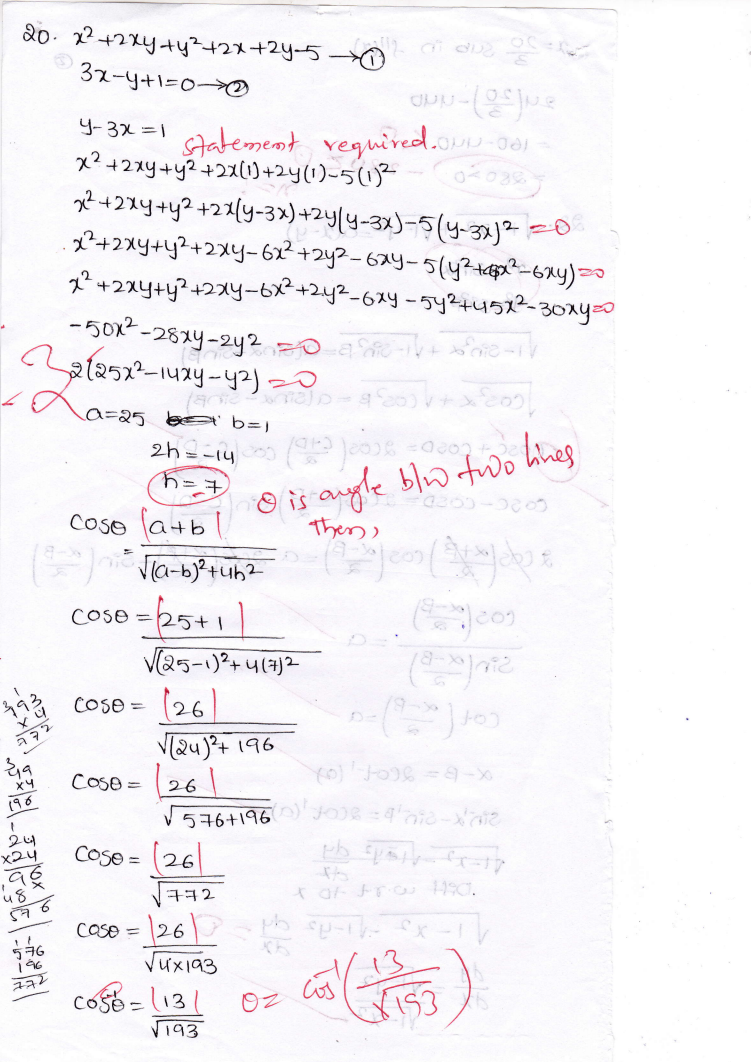 20. x²+2xy+y²+2x+2y-5 →①
3x-y+1=0→②
y-3x=1
statement required.
x²+2xy+y²+2x(1)+2y(1)-5(1)²
x²+2xy+y²+2x(y-3x)+2y(y-3x)-5(y-3x)² =0
x²+2xy+y²+2xy-6x²+2y²-6xy-5(y²+9x²-6xy)=0
x²+2xy+y²+2xy-6x²+2y²-6xy-5y²+45x²-30xy=0
-50x²-28xy-2y² =0
2(25x²-14xy-y²) =0
a=25 b=1
2h=-14
h=-7
θ is angle b/w two lines
then,
cosθ = |a+b| / √(a-b)²+4h²
cosθ = |25+1| / √(25-1)²+4(7)²
cosθ = |26| / √(24)²+196
cosθ = |26| / √576+196
cosθ = |26| / √772
cosθ = |26| / √4x193
cosθ = |13| / √193 θ= cos⁻¹(13/√193)
193
x4
772
49
x4
196
24
x24
96
48x
576
576
196
772